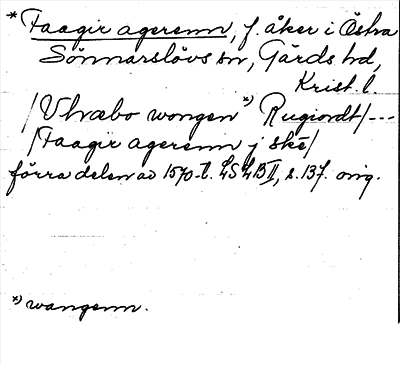 *Faagir agerenn, f. åker i Östra
Sönnarslövs sn, Gärds hd,
Krist. l.
/Vlræbo wongen *) Rugiordt/---
/Faagir agerenn j skē/
förra delen av 1570-t. LSLB II, s. 137. orig.
*) wangenn.